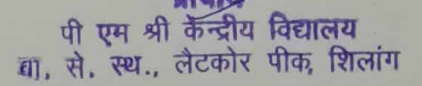 पी एम श्री केन्द्रीय विद्यालय
वा. से. स्थ., लैटकोर पीक, शिलांग